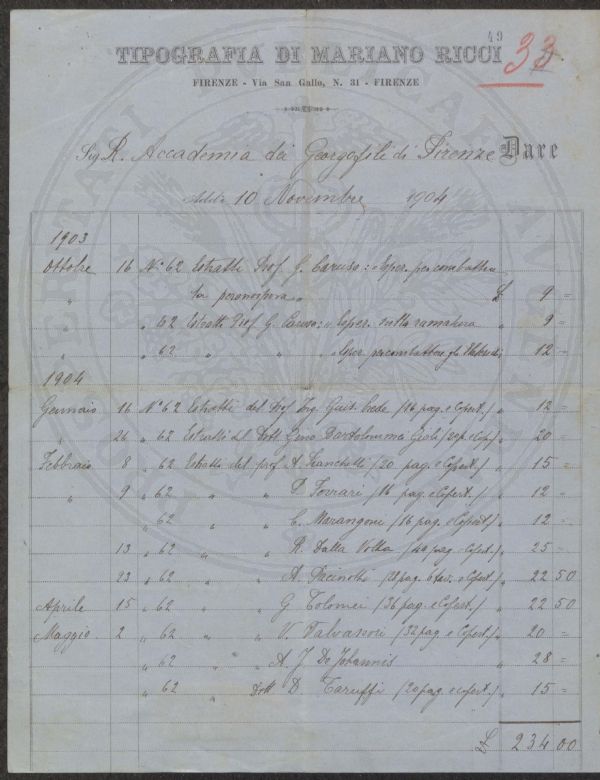 49
TIPOGRAFIA DI MARIANO RICCI 33
FIRENZE - Via San Gallo, N. 31 - FIRENZE
Sig. R. Accademia dei Georgofili di Firenze Dare
Addì 10 Novembre 1904
1903
Ottobre 16 N° 62 Estratti Prof. G. Caruso: Esper. per combattere
" la peronospera " £ 9 =
" " 62 Estratti Prof. G. Caruso: " Esper. sulla ramatura " 9 =
" " 62 " " " Esper. per combattere gli " 12 =
1904
Gennaio 16 N° 62 Estratti del Prof. Ing. Guit. /16 pag. e Copert./ " 12 =
" 26 " 62 Estratti del Dott. Gino Bartolommei Gioli /20 p. e Cop./ " 20 =
Febbraio 8 " 62 Estratti del prof. A. /20 pag. e Copert./ " 15 =
" 9 " 62 " " P. Ferrari /16 pag. e Copert./ " 12 =
" 62 " " C. Marangoni /16 pag. e Copert./ " 12 =
13 " 62 " " R. Dalla Volta /40 pag. e Copert./ " 25 =
23 " 62 " " A. Pacinotti /28 pag. 6 tav. e Copert./ " 22 50
Aprile 15 " 62 " " G. Tolomei /36 pag. e Copert./ " 22 50
Maggio 2 " 62 " " V. Valvassori /32 pag. e Copert./ " 20 =
" 62 " " A. J. De Johannis " 28 =
" 62 Dott. D. Taruffi /20 pag. e copert./ " 15 =
£ 234 00